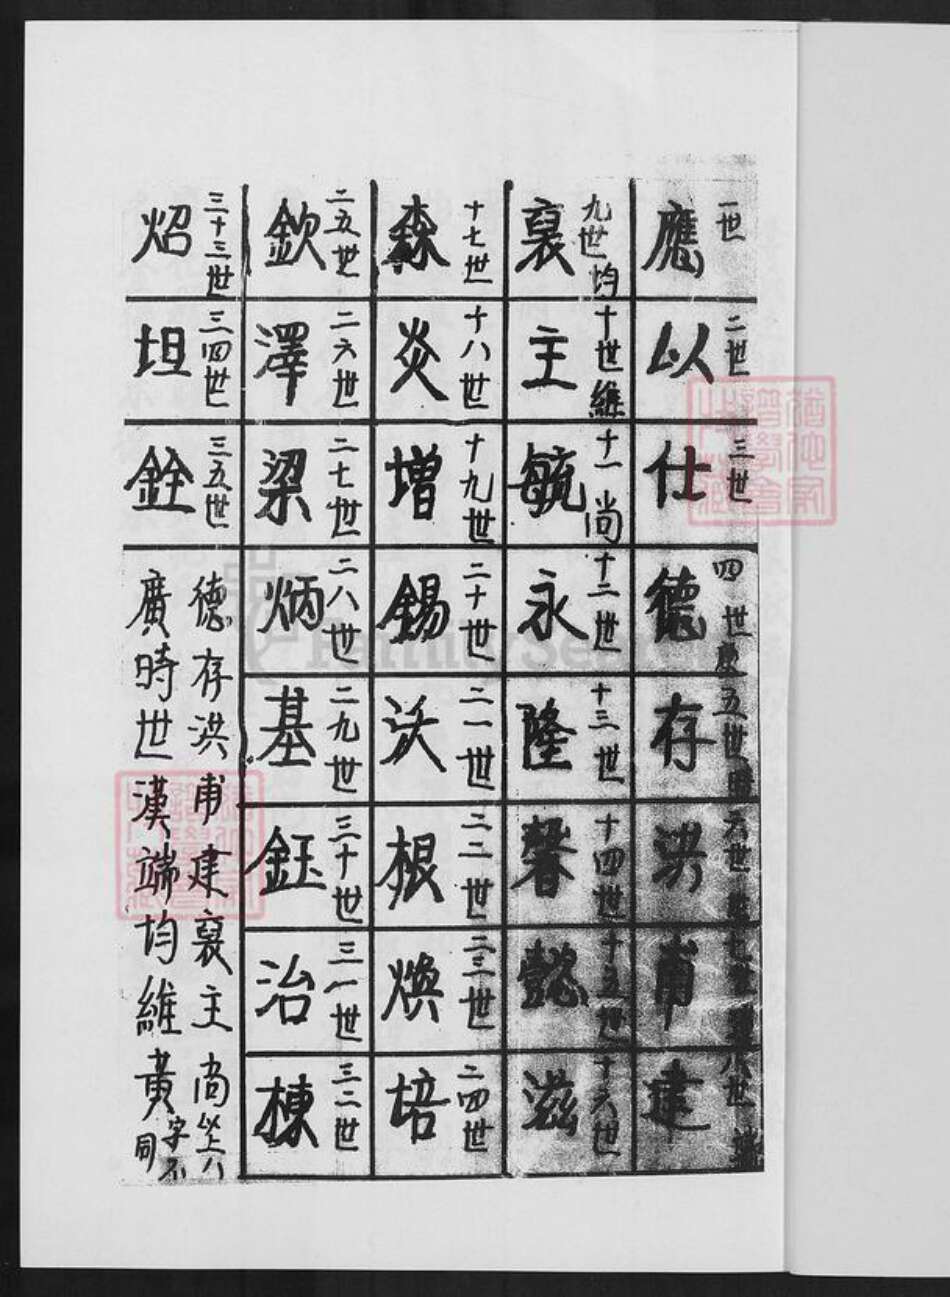 一世 應
二世 以
三世 仕
四世 德 廣
五世 存 時
六世 洪
七世 甫
八世 建 端
九世 裒 均
十世 主 維
十一 毓 尚
十二世 永
十三世 隆
十四世 馨
十五世 懿
十六世 滋
十七世 森
十八世 炎
十九世 增
二十世 錫
二一世 沃
二二世 根
二三世 煥
二四世 培
二五世 欽
二六世 澤
二七世 梁
二八世 炳
二九世 基
三十世 鈺
三一世 治
三二世 棟
三十三世 炤
三四世 坦
三五世 銓
德存洪甫建裒主尚以上八字不同
廣時世漢端均維黃
FamilySearch